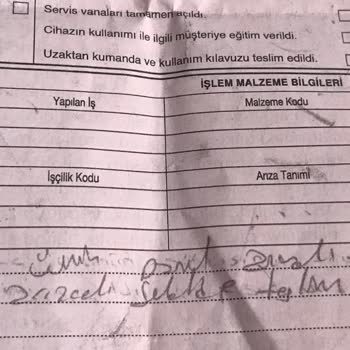 Servis vanaları tamamen açıldı.
Cihazın kullanımı ile ilgili müşteriye eğitim verildi.
Uzaktan kumanda ve kullanım kılavuzu teslim edildi.
İŞLEM MALZEME BİLGİLERİ
Yapılan İş
Malzeme Kodu
İşçilik Kodu
Arıza Tanımı